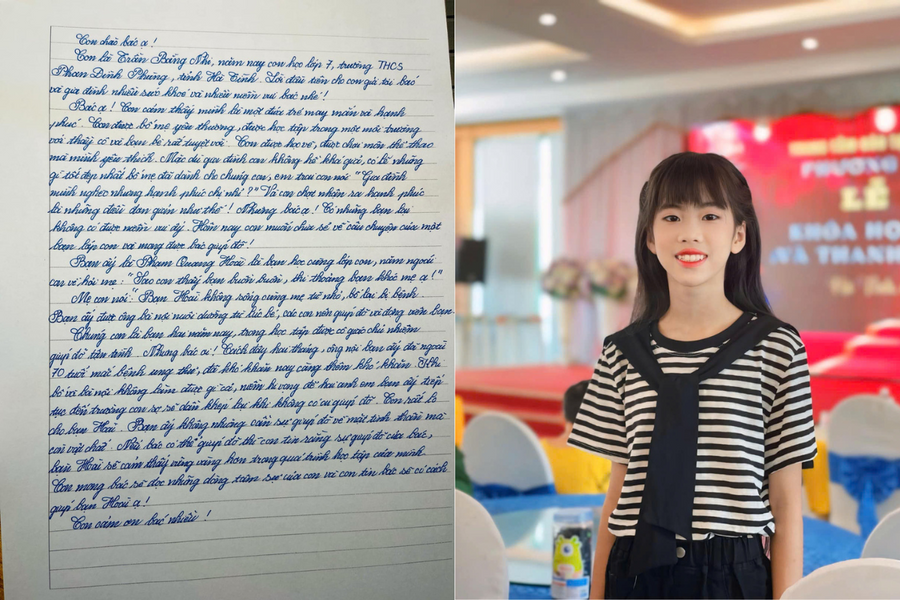 Con chào bác ạ!
Con là Trần Băng Nhi, năm nay con học lớp 7, trường THCS
Phan Đình Phùng, tỉnh Hà Tĩnh. Lời đầu tiên cho con gửi tới bác
và gia đình nhiều sức khỏe và nhiều niềm vui bác nhé!
Bác ạ! Con cảm thấy mình là một đứa trẻ may mắn và hạnh
phúc. Con được bố mẹ yêu thương, được học tập trong một môi trường
với thầy cô và bạn bè rất tuyệt vời. Con được học vẽ, được chơi môn thể thao
mà mình yêu thích. Mặc dù gia đình con không hề khá giả, có lẽ những
gì tốt đẹp nhất bố mẹ đã dành cho chúng con, em trai con nói: "Gia đình
mình nghèo nhưng hạnh phúc chị nhỉ?" Và con chợt nhận ra hạnh phúc
là những điều đơn giản như thế! Nhưng bác ạ! Có những bạn lại
không có được niềm vui ấy. Hôm nay con muốn chia sẻ về câu chuyện của một
bạn lớp con và mong được bác giúp đỡ!
Bạn ấy là Phan Quang Hoài là bạn học cùng lớp con, năm ngoái
con về hỏi mẹ: "Sao con thấy bạn buồn buồn, thi thoảng bạn khóc mẹ ạ!"
Mẹ con nói: Bạn Hoài không sống cùng mẹ từ nhỏ, bố lại bị bệnh
Bạn ấy được ông bà nội nuôi dưỡng từ lúc bé, các con nên giúp đỡ và động viên bạn.
Chúng con là bạn hai năm nay, trong học tập được cô giáo chủ nhiệm
giúp đỡ tận tình. Nhưng bác ạ! Cách đây hai tháng, ông nội bạn ấy đã ngoài
70 tuổi mắc bệnh ung thư, đã khó khăn nay càng thêm khó khăn. Khi
bố và bà nội không làm được gì cả, niềm hi vọng để hai anh em bạn ấy tiếp
tục đến trường con sợ sẽ dần khép lại khi không có ai giúp đỡ. Con rất lo
cho bạn Hoài. Bạn ấy không những cần sự giúp đỡ về mặt tinh thần mà
còn vật chất. Nếu bác có thể giúp đỡ thì con tin rằng sự giúp đỡ của bác,
bạn Hoài sẽ cảm thấy vững vàng hơn trong quá trình học tập của mình.
Con mong bác sẽ đọc những dòng tâm sự của con và con tin bác sẽ có cách
giúp bạn Hoài ạ!
Con cảm ơn bác nhiều!
PHƯƠNG
LỄ
KHÓA HỌ
VÀ THANH